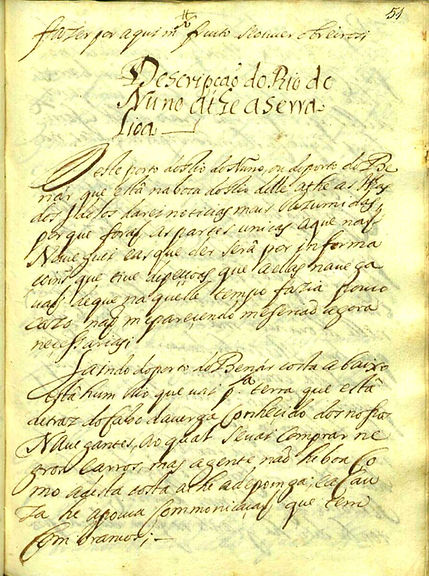 51
fazer por aqui m.to fruito se ouver obreiros;
Descripçaõ do Rio de
Nuno athe a serra
lioa
Deste porto do Rio do Nuno, ou do porto de Be
nár que está na boca do Rio delle athe as
dos, darei noticias mais Rezumidas,
porque foraõ as partes unicas a que naõ
Naveguei e as que der será por informa
coins que tive de pessoas que a ellas navega
vaõ, de que naquelle tempo fazia pouco
cazo naõ me parecendo me serem agora
neçessarias;
Saindo do porto de Benár costa abaixo
está hum Rio que vai p.a terra que está
detraz do Cabo da verga Conhecido dos nossos
Navegantes, ao qual se vai Comprar ne
gros Carros, mas a gente naõ he boa Co
mo a desta costa athe a de ponga; e a Cau
za he a pouca Commonicaçaõ que tem
Com branco;